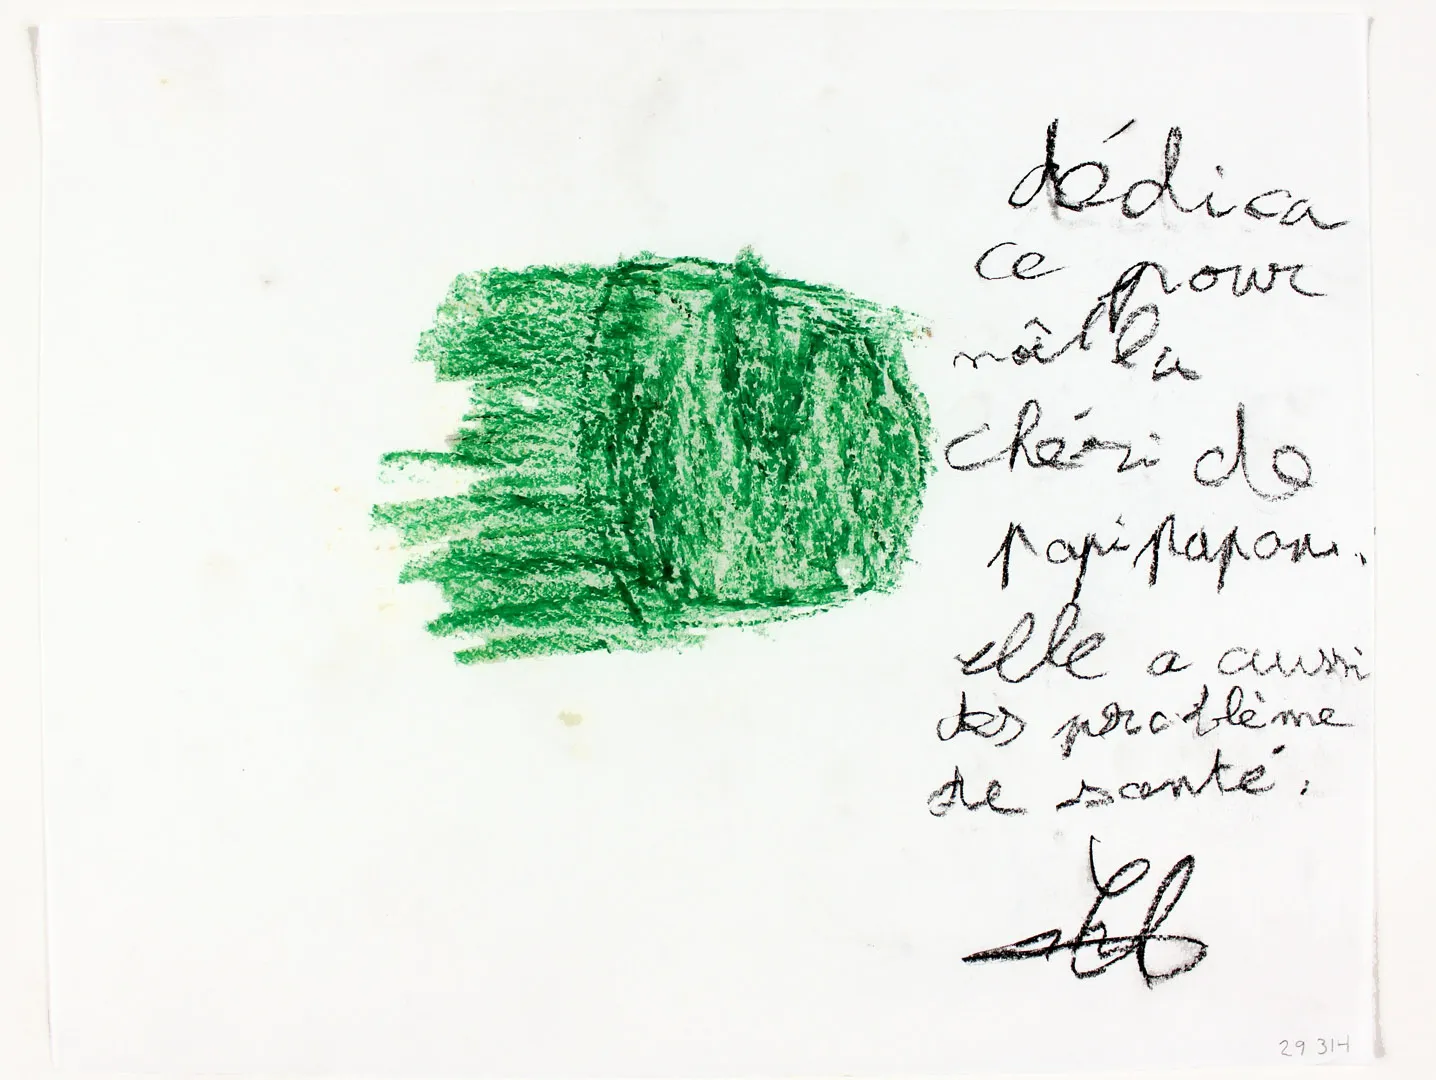 dédica
ce pour
la
chéri de
papi papon.
elle a aussi
des problème
de santé.
29 314